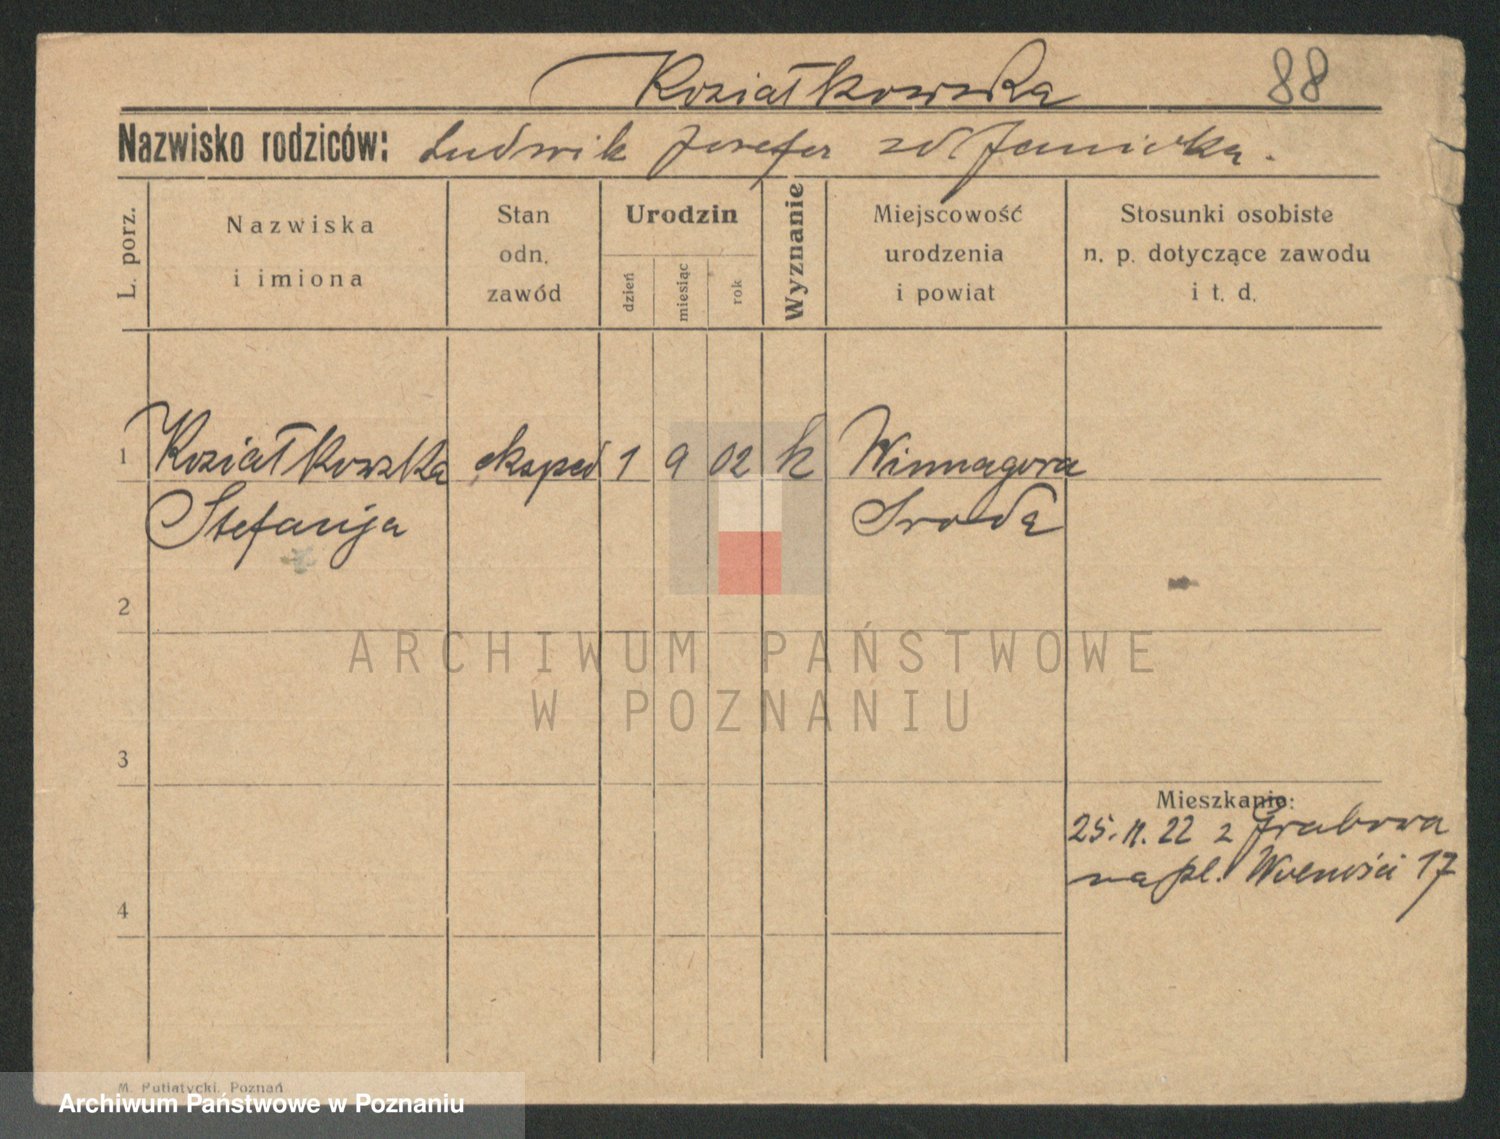 Koziałkowska 88
Nazwisko rodziców: Ludwik Josefa zd Janicka.
L. porz.
Nazwiska
i imiona
Stan
odn.
zawód
Urodzin
dzień
miesiąc
rok
Wyznanie
Miejscowość
urodzenia
i powiat
Stosunki osobiste
n. p. dotyczące zawodu
i t. d.
1 Koziałkowska eksped 1 9 02 k Winnagora
Stefanja Sroda
2
ARCHIWUM PAŃSTWOWE
W POZNANIU
3
Mieszkanie:
25.11.22 z Grabowa
na pl. Wolności 17
4
M. Putiatycki, Poznań
Archiwum Państwowe w Poznaniu